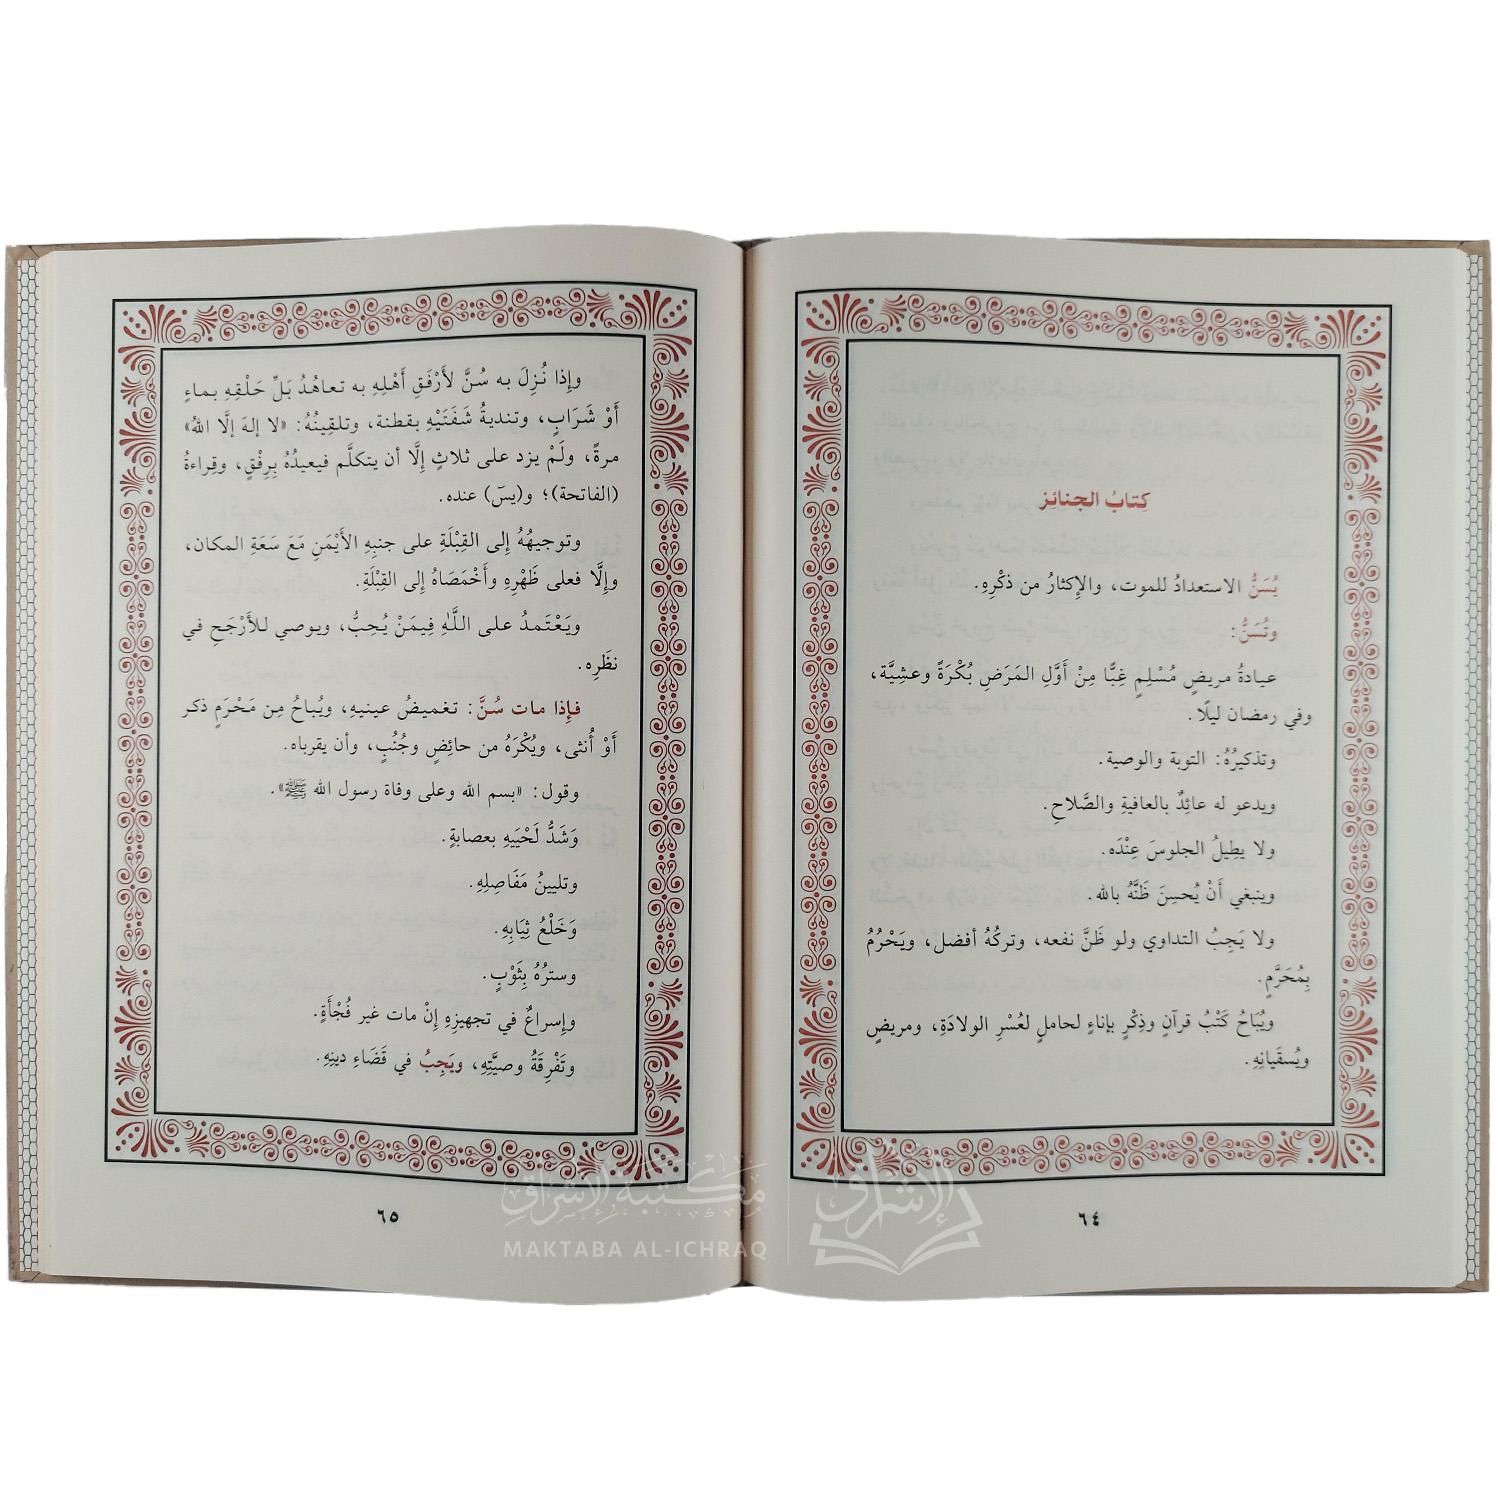 كِتابُ الجنائِز
يُسَنُّ الاستعدادُ للموت، والإكثارُ من ذكْرِهِ.
وتُسَنُّ:
عيادةُ مريضٍ مُسْلِمٍ غِبًّا مِنْ أَوَّلِ المَرَضِ بُكْرَةً وعشِيَّة،
وفي رمضان ليلًا.
وتذكيرُهُ: التوبة والوصية.
ويدعو له عائِدٌ بالعافية والصَّلاحِ.
ولا يطِيلُ الجلوسَ عِنْدَه.
وينبغي أَنْ يُحسِنَ ظَنَّهُ بالله.
ولا يَجِبُ التداوي ولو ظَنَّ نفعه، وتركُهُ أفضل، ويَحْرُمُ
بِمُحَرَّمٍ.
ويُبَاحُ كَتْبُ قرآنٍ وذِكْرٍ بإناءٍ لحاملٍ لعُسْرِ الولادَةِ، ومريضٍ
ويُسقَيانِهِ.
٦٤
وإذا نُزِلَ به سُنَّ لأَرْفَقِ أَهْلِهِ به تعاهُدُ بَلِّ حَلْقِهِ بماءٍ
أَوْ شَرَابٍ، وتنديةُ شَفَتَيْهِ بقطنة، وتلقِينُهُ: «لا إلهَ إلَّا اللهُ»
مرةً، ولَمْ يزد على ثلاثٍ إلَّا أن يتكلَّم فيعيدُهُ بِرِفْقٍ، وقِراءةُ
(الفاتحة)؛ و(يسٓ) عنده.
وتوجيهُهُ إلى القِبْلَةِ على جنبِهِ الأَيْمَنِ مَعَ سَعَةِ المكان،
وإلَّا فعلى ظَهْرِهِ وأَخْمَصَاهُ إلى القِبْلَةِ.
ويَعْتَمدُ على اللَّهِ فِيمَنْ يُحِبُّ، ويوصي للأَرْجَحِ في
نظَرِه.
فإذا مات سُنَّ: تغميضُ عينيهِ، ويُباحُ مِن مَحْرَمٍ ذكر
أَوْ أُنثى، ويُكْرَهُ من حائِضٍ وجُنُبٍ، وأن يقرباه.
وقول: «بسم الله وعلى وفاة رسول الله ﷺ».
وَشَدُّ لَحْيَيهِ بعصابةٍ.
وتليينُ مَفَاصِلِهِ.
وَخَلْعُ ثِيَابِهِ.
وسترُهُ بِثَوْبٍ.
وإسراعٌ في تجهيزِهِ إنْ مات غير فُجْأَةٍ.
وتَفْرِقَةُ وصيَّتِهِ، ويَجِبُ في قَضَاءِ دينِهِ.
٦٥
مكتبة الإشراق
MAKTABA AL-ICHRAQ
الإشراق